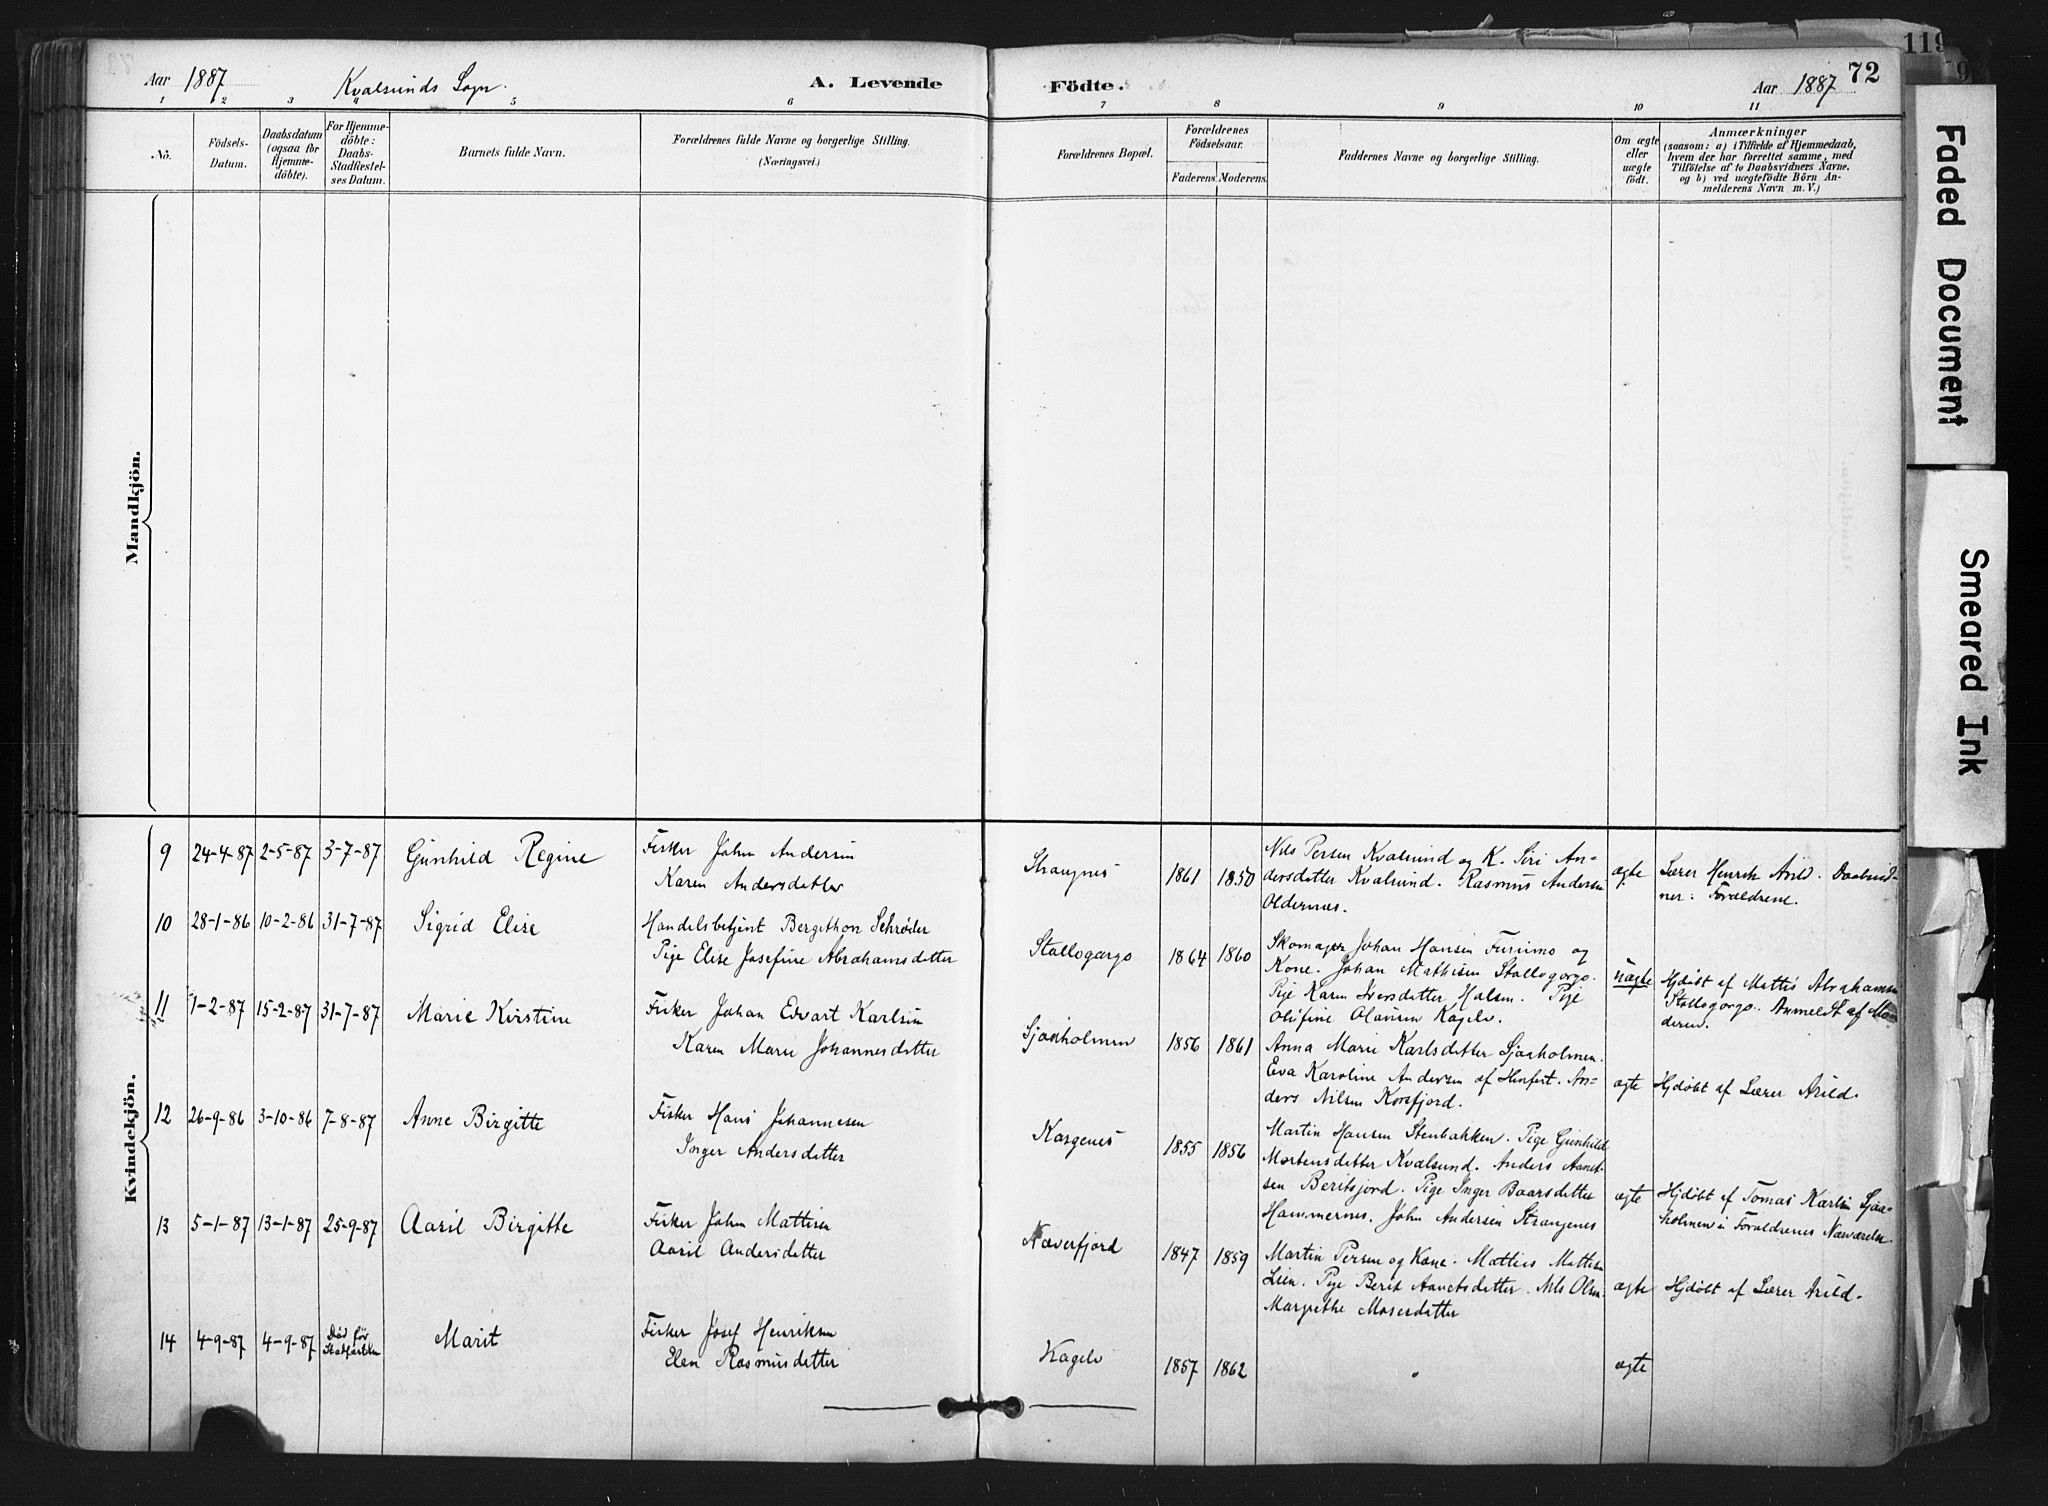 Aar 1887
Kvalsunds Sogn.
A. Levende
Födte.
Aar 1887
72
119
1 2 3 4 5 6 7 8 9 10 11
No.
Födsels-
Datum.
Daabsdatum
(ogsaa for
Hjemme-
döbte).
For Hjemme-
döbte:
Daabs-
Stadfæstel-
ses Datum.
Barnets fulde Navn.
Forældrenes fulde Navne og borgerlige Stilling.
(Næringsvei.)
Forældrenes Bopæl.
Forældrenes
Födselsaar.
Faderens. Moderens.
Faddernes Navne og borgerlige Stilling.
Om ægte
eller
uægte
födt.
Anmærkninger
(saasom: a) i Tilfælde af Hjemmedaab,
hvem der har forrettet samme, med
Tilföielse af to Daabsvidners Navne.
og b) ved uægtefödte Börn An-
melderens Navn m. V.)
Mandkjön.
Kvindekjön.
9 24-4-87 2-5-87 3-7-87 Gunhild Regine
Fisker John Andersen
Karen Andersdatter
Strangnes 1861 1850
Nils Persen Kvalsund og K. Siri An-
dersdatter Kvalsund. Rasmus Andersen
Oldernes.
ægte
Lærer Henrik Arild. Daabsvid-
ner: Forældrene.
10 28-1-86 10-2-86 31-7-87 Sigrid Elise
Handelsbetjent Bergithon Schrøder
Pige Elise Josefine Abrahamsdatter
Stallogargo 1864 1860
Skomager Johan Hansen Furumo og
Kone. Johan Mathisen Stallogorgo.
Pige Karen Iversdatter Halsen. Pige
Olufine Olavsen Kagelv.
uægte
Hjdøbt af Mattis Abrahamsen
Stallogorgo. Anmeldt af Mo
deren.
11 1-2-87 15-2-87 31-7-87 Marie Kirstine
Fisker Johan Edvart Karlsen
Karen Marie Johannesdatter
Sjaaholmen 1856 1861
Anna Marie Karlsdatter Sjaaholmen.
Eva Karoline Andersen af Hmfest. An-
ders Nilsen Korsfjord.
ægte
Hjdøbt af Lærer Arild.
12 26-9-86 3-10-86 7-8-87 Anne Birgitte
Fisker Hans Johannesen
Inger Andersdatter
Kargenes 1855 1856
Martin Hansen Stenbakken. Pige Gunhild
Mortensdatter Kvalsund. Anders Aanet-
sen Beritsjord. Pige Inger Baarsdatter
Hammernes. John Andersen Strangenes
ægte
Hjdøbt af Tomas Karlsen Sjaa-
holmen i Forældrenes Nærværelse
13 5-1-87 13-1-87 25-9-87 Aaril Birgitte
Fisker John Mattisen
Aaril Andersdatter
Næverfjord 1847 1859
Martin Persen og Kone. Mattias Mattisen
Lien. Pige Berit Aanetsdatter. Nils Olsen.
Margrethe Mosesdatter
ægte
Hjdøbt af Lærer Arild.
14 4-9-87 4-9-87 Død før
Marit
Fisker Josef Henriksen
Elen Rasmusdatter
Kagelv 1857 1862
ægte
Faded Document
Smeared Ink